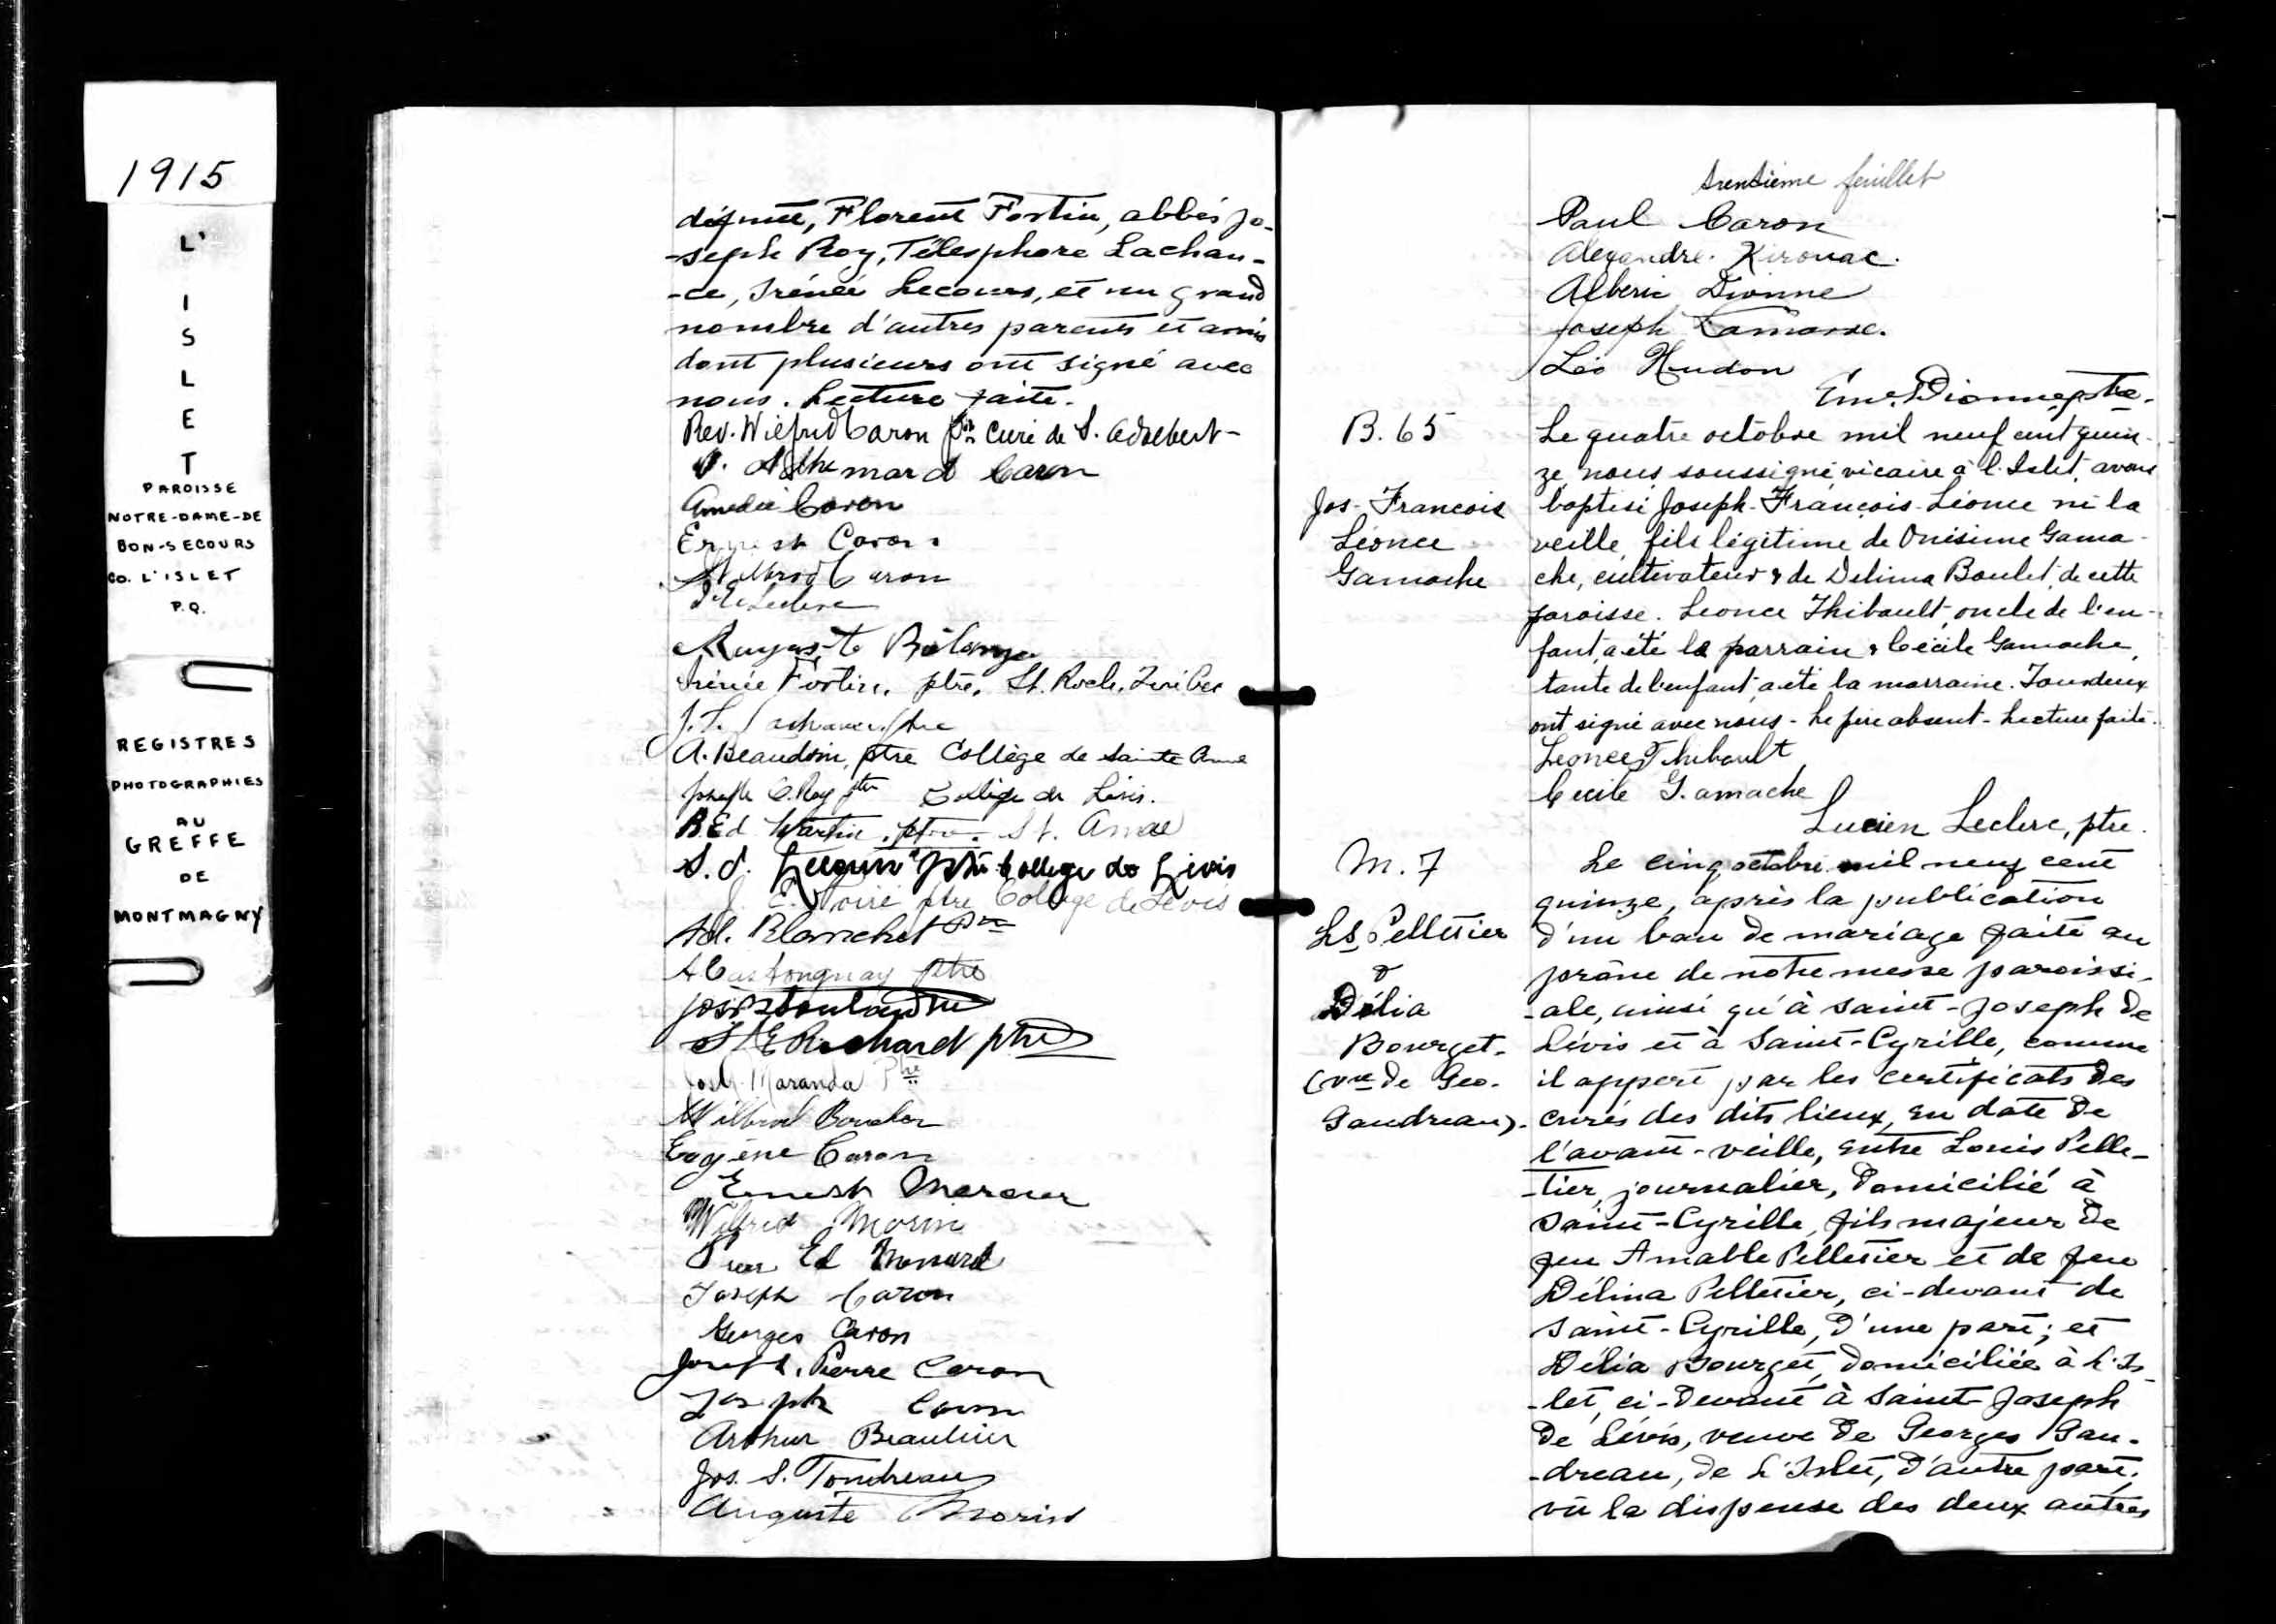 1915
L'
I
S
L
E
T
PAROISSE
NOTRE-DAME-DE
BON-SECOURS
CO. L'ISLET
P.Q.
REGISTRES
PHOTOGRAPHIES
AU
GREFFE
DE
MONTMAGNY
défunte, Florent Fortin, abbés Jo-
-seph Roy, Télesphore Lachan-
-ce, Irénée Lecours, et un grand
nombre d'autres parents et amis
dont plusieurs ont signé avec
nous. Lecture faite.
Rev. Wilfrid Caron ptre curé de S. Adalbert-
Caron
Amédée Caron
Ernest Caron
Caron
Leclerc
Auguste Bélanger
Irénée Fortin, ptre, St. Roch, Québec
J. T. Lachance, ptre
A. Beaudoin, ptre Collège de Sainte Anne
Joseph C. Roy ptre Collège de Lévis.
B. Ed. Martin, ptre. St. Anne
S. J. Lecours ptre College de Lévis
J. E. Poiré ptre College de Lévis
Ad. Blanchet Ptre
A Castonguay ptre
S. E. Richard ptre
Jos. Maranda Ptre
Eugène Caron
Ernest Mercier
Wilfrid Morin
Ed
Joseph Caron
Georges Caron
Joseph. Pierre Caron
Joseph Caron
Arthur Beaulieu
Jos. S. Tondreau
Auguste Morin
trentième feuillet
Paul Caron
Alexandre. Kirouac.
Albéric Dionne
Joseph Lamarre.
Léo Hudon
Em. Dionne, ptre.
B. 65
Jos- Francois
Léonce
Gamache
Le quatre octobre mil neuf cent quin-
ze, nous soussigné, vicaire à l'Islet, avons
baptisé Joseph-François-Léonce né la
veille, fils légitime de Onésime Gama-
che, cultivateur & de Delima Boulet, de cette
paroisse. Leonce Thibault, oncle de l'en-
fant, a été le parrain & Cécile Gamache,
tante de l'enfant, a été la marraine. Tous deux
ont signé avec nous - Le père absent - Lecture faite.
Leonce Thibault
Cecile Gamache
Lucien Leclerc, ptre.
M. 7
Ls Pelletier
&
Délia
Bourget-
(vve de Geo.
Gaudreau).
Le cinq octobre mil neuf cent
quinze, après la publication
d'un ban de mariage faite au
prône de notre messe paroissi-
-ale, ainsi qu'à saint-Joseph de
Lévis et à Saint-Cyrille, comme
il appert par les certificats des
curés des dits lieux, en date de
l'avant-veille, entre Louis Pelle-
-tier, journalier, domicilié à
saint-Cyrille, fils majeur de
feu Amable Pelletier et de feu
Délina Pelletier, ci-devant de
saint-Cyrille, d'une part; et
Délia Bourget, domiciliée à L'Is-
-let, ci-devant à Saint-Joseph
de Lévis, veuve de Georges Gau-
-dreau, de L'Islet, d'autre part;
vu la dispense des deux autres